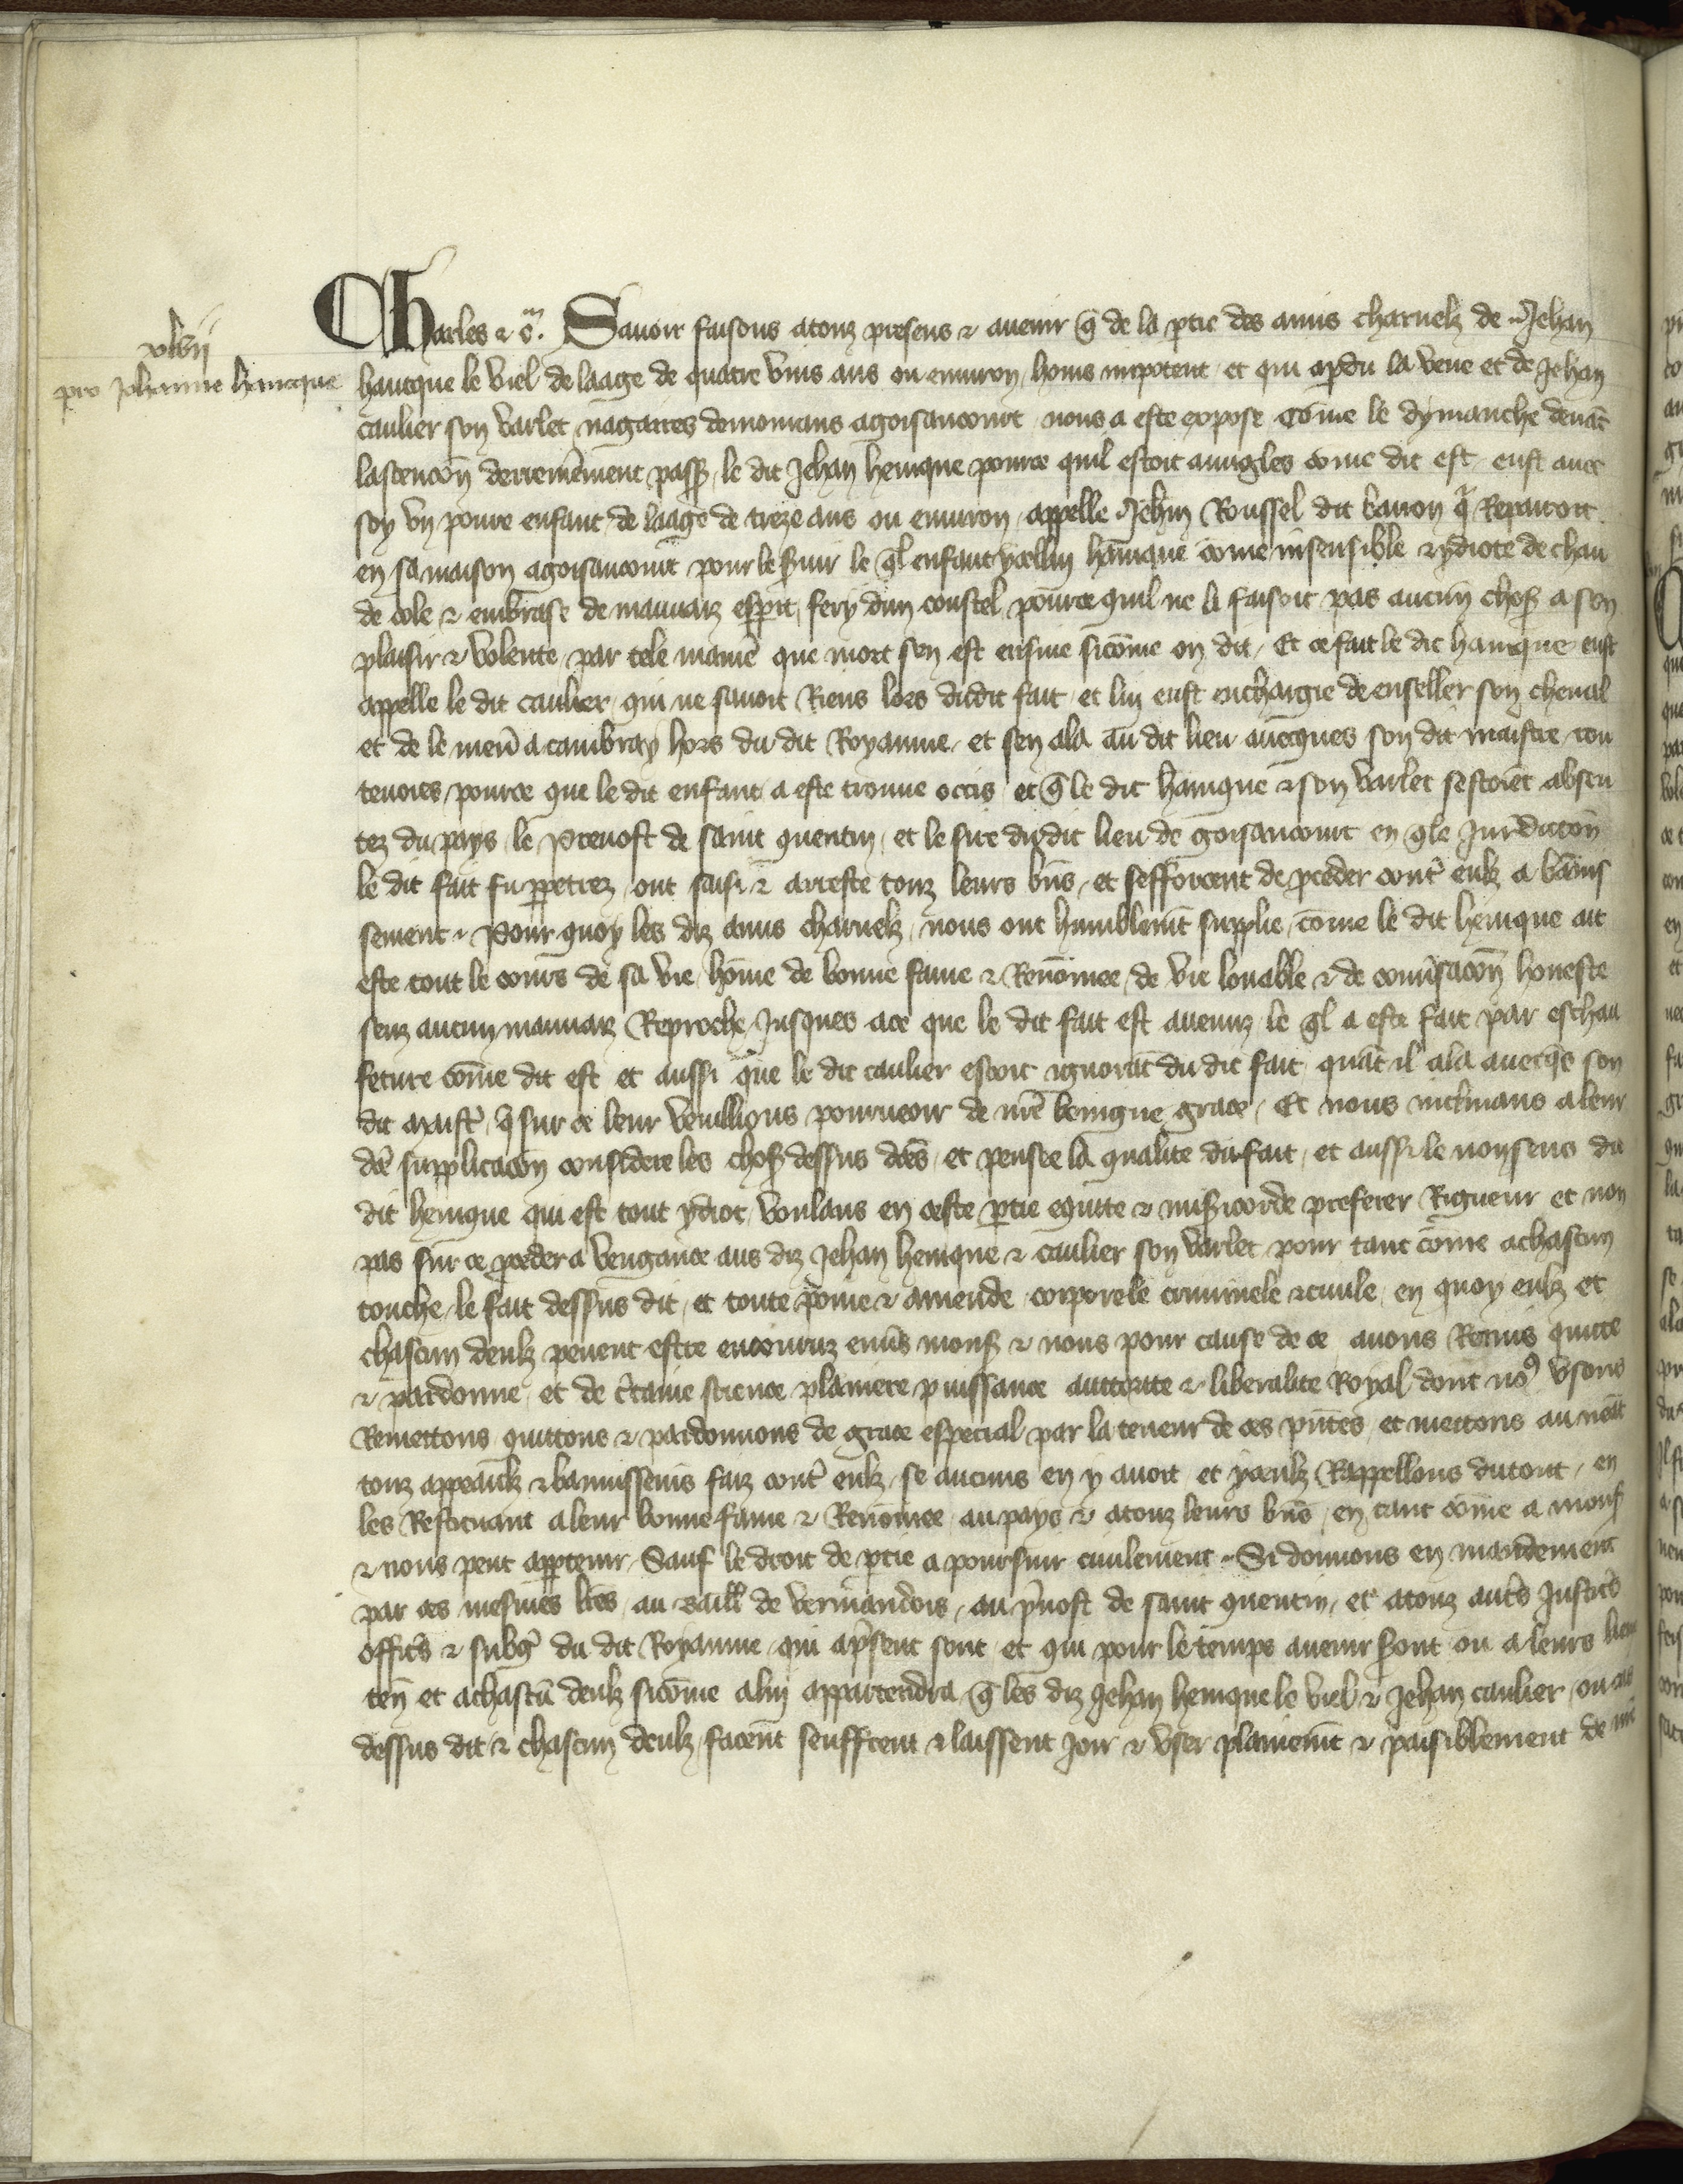 xlvii
pro Johanne hanique
Charles &c. Savoir faisons a touz presens & avenir q̃ de la ptie des amis charnelz de Jehan
hanique le viel de laage de quatre vins ans ou environ homs inpotent et qui a pdu la veue et de Jehan
caulier son varlet nagaires demourans a goisaucourt nous a este expose cõme le dymanche devãt
lascencõn derreinẽment passe le dit Jehan henique pource quil estoit avugles cõme dit est eust avec
soy un povre enfant de laage de treze ans ou environ appelle Jehan Roussel dit bavon q̃ Repairoit
en sa maison a goisaucourt pour le svir le q̃l enfant ycellui hanique cõme insensible & ydiote de chau
de cole & embrase de mauvaiz esprit fery dun coustel pource quil ne li faisoit pas aucun chose a son
plaisir & volente par tele maniẽ que mort sen est ensuie sicõme on dit Et ce fait le dit hanique eust
appelle le dit caulier qui ne savoit Riens lors dudit fait et lui eust enchargie de enseller son cheval
et de le men̄ a cambray hors du dit Royaume et sen ala au dit lieu avecques son dit maistre
pource que le dit enfant a este trouve occis et q̃ le dit hanique & son varlet sestoiẽt absen
tez du pays le Prevost de saint quentin et le sire dudit lieu de goisaucourt en q̃le Juridicõn
le dit fait fu ppetrez ont saisi & arreste touz leurs bñs et sefforcent de pceder contr̃ eulz a bãnis
sement Pour quoy les diz amis charnelz nous ont humblemt̃ supplie cõme le dit henique ait
este tout le cours de sa vie hõme de bonne fame & Renõmee de vie louable & de convsacõn honeste
senz aucun mauvaiz Reproche Jusques a ce que le dit fait est avenuz le q̃l a este fait par eschau
feture cõme dit est et aussi que le dit caulier estoit ignorãt du dit fait quãt il ala avecqs̃ son
dit maistr̃ q̃ sur ce leur veuillions pourveoir de nrẽ benigne grace Et nous inclinans a leur
dcẽ supplicacõn considere les choses dessus dc̃es et pensee la qualite du fait et aussi le nonsens du
dit henique qui est tout ydiot voulans en ceste ptie equite & misicorde preferer Rigueur et non
pas sur ce pceder a vengance aus diz Jehan henique & caulier son varlet pour tant cõme a chascun
touche le fait dessus dit et toute poine & amende corporele criminele & civile en quoy eulz et
chascun deulz pevent estre encouruz envs̃ mons & nous pour cause de ce avons Remis quitte
& pardonne et de c̃taine science planiere puissance auttorite & liberalite Royal dont no9 usons
Remettons quittons & pardonnons de grace especial par la teneur de ces pñtes et mettons au neãt
touz appeaulz & bannissemens faiz contr̃ eulz se aucuns en y avoit et yceulz Rappellons du tout en
les Restituant a leur bonne fame & Renõmee au pays & a touz leurs bñs en tant cõme a mons
& nous peut apptenir Sauf le droit de ptie a poursuir civilement Si donnons en mandement
par ces mesmes lr̃es au Baill de vermandois au pvost de saint quentin et a touz autrs̃ Justicrs̃
officrs̃ & subgz̃ du dit Royaume qui a psent sont et qui pour le temps avenir sont ou a leurs lieux
ten̄ et a chascũ deulz sicõme a lui appartendra q̃ les diz Jehan henique le viel & Jehan caulier ou cas
dessus dit & chascun deulz facent seuffrent & laissent joir & user planiemt̃ & paisiblement de nrẽ